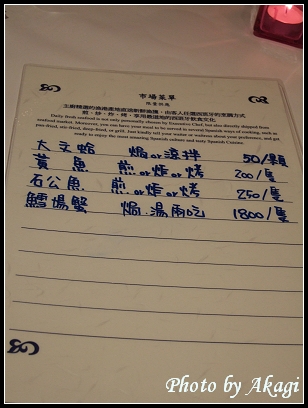 市場菜單
限量供應
主廚精選的漁港產地直送新鮮海產，由客人任選西班牙的烹調方式
煎、炒、炸、烤，享用最道地的西班牙飲食文化
Daily fresh seafood is not only personally chosen by Executive Chef, but also directly shipped from
seafood market. Moreover, you can have your meal to be served in several Spanish ways of cooking, such as
pan-fried, stir-fried, deep-fried, or grill. Just kindly tell your waiter or waitress about your preference, and get
ready to enjoy the most amazing Spanish culture and tasty Spanish Cuisine.
大文蛤 焗or涼拌 50/顆
黃魚 煎or炸or烤 200/隻
石公魚 煎or炸or烤 250/隻
鱘場蟹 焗.湯兩吃 1800/隻
Photo by Akagi